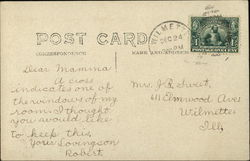 POST CARD
CORRESPONDENCE
NAME AND ADDRESS
WILMETTE
DEC 24
PM
Dear Mamma
A cross
indicates one of
the windows of my
room. I thought
you would like
to keep this.
Your Loving son
Robert.
Mrs. J. R. Sweet,
Elmwood Ave.
Wilmette
Ill.